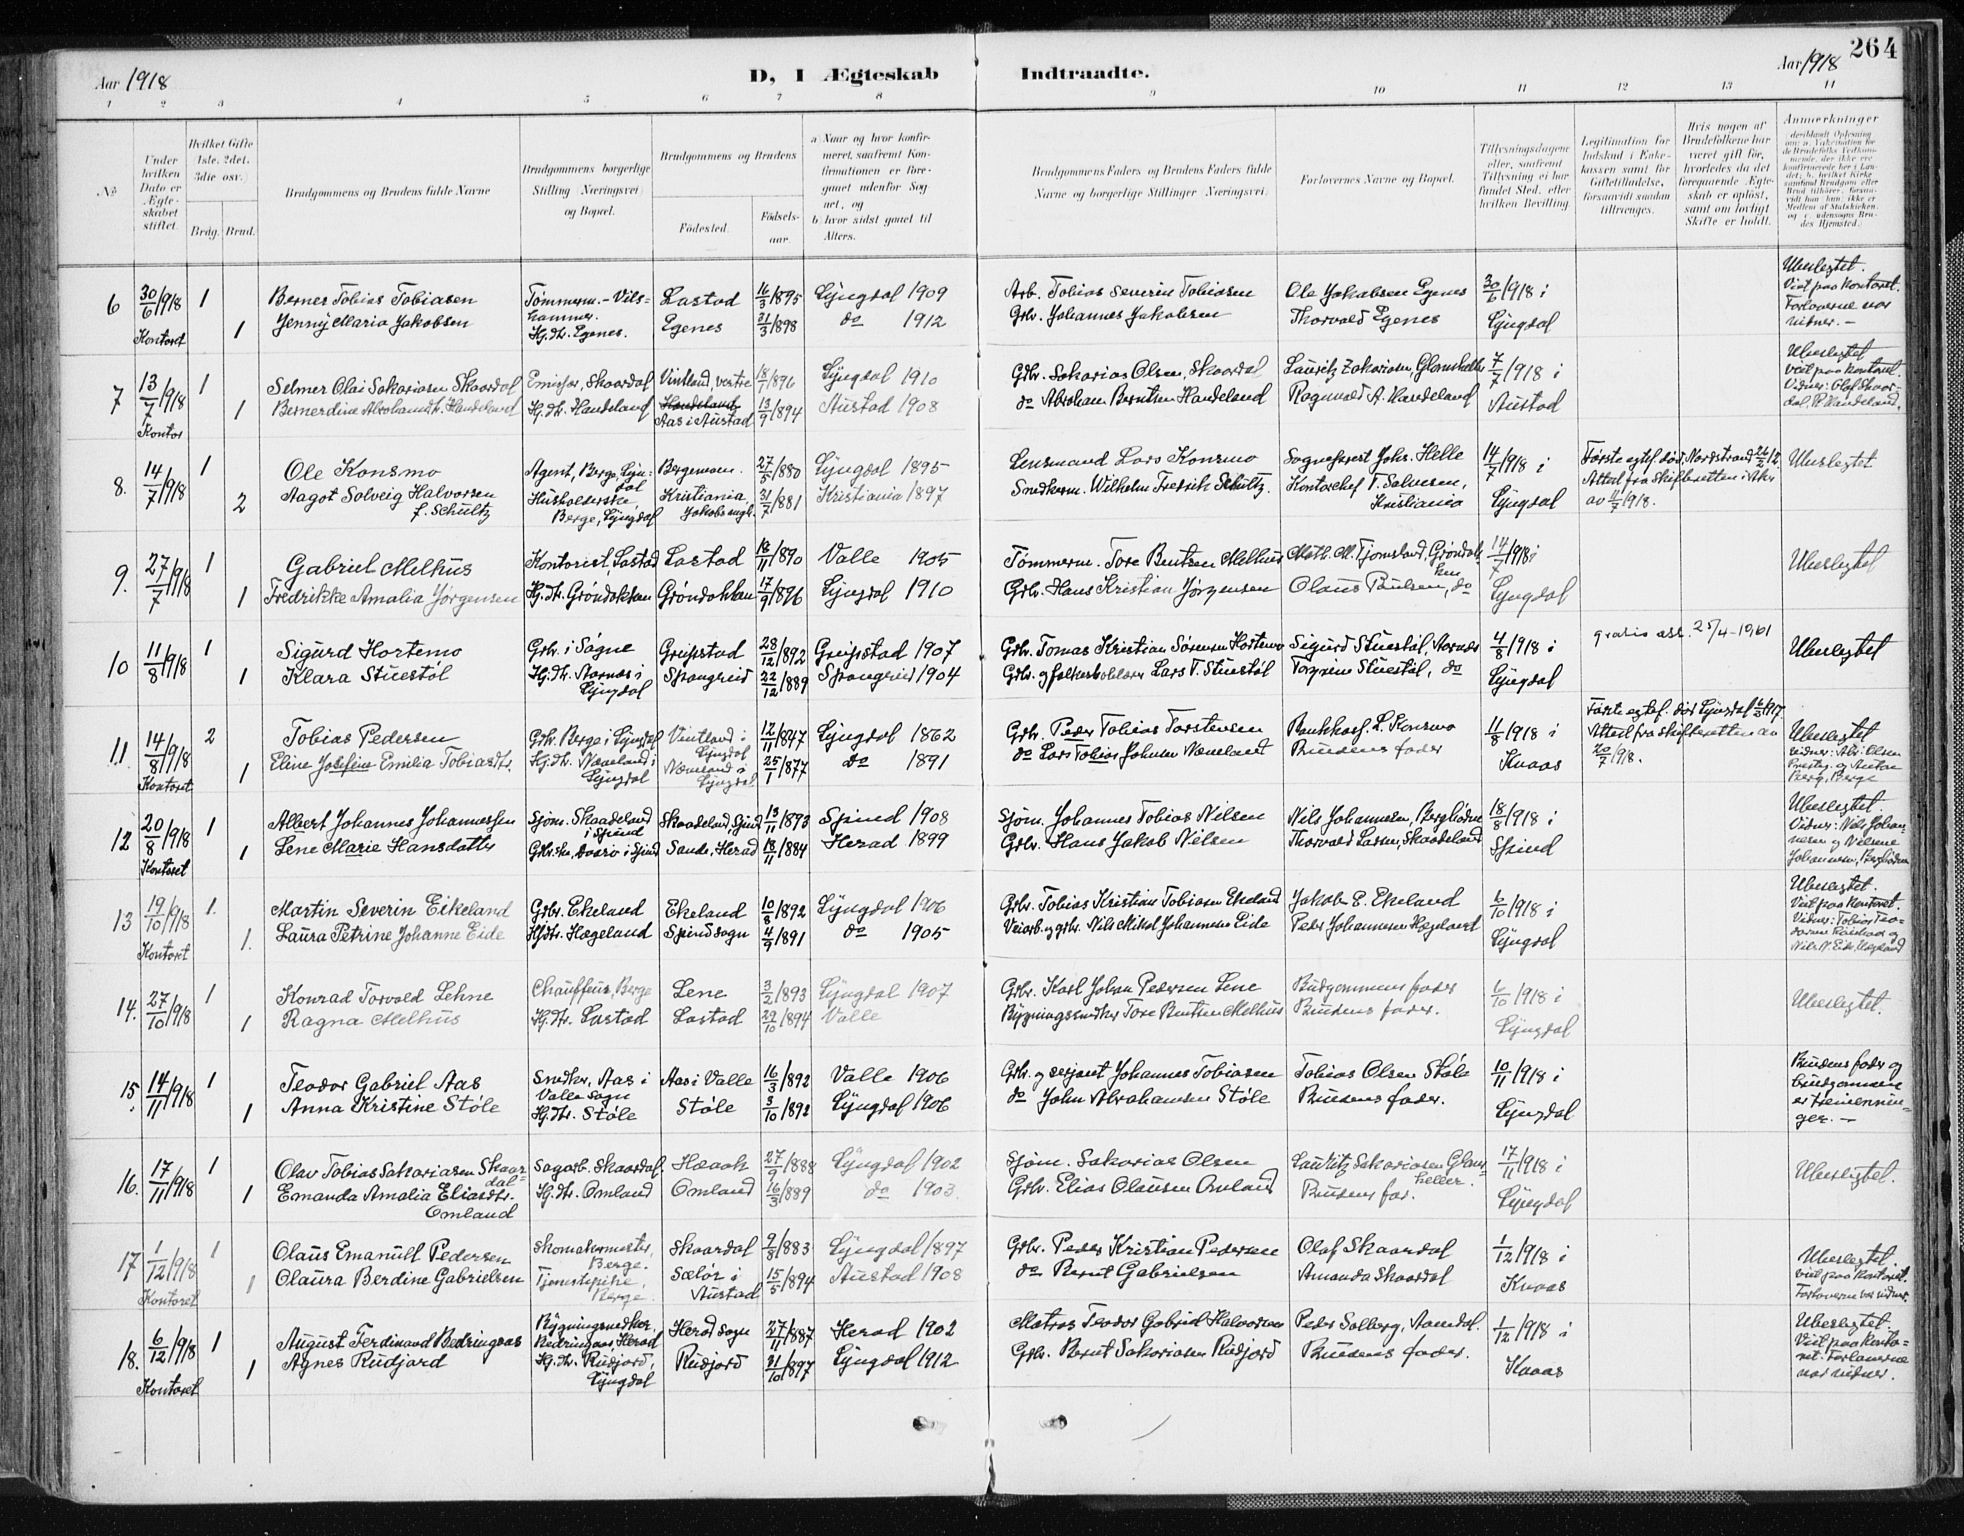 264
Aar 1918 D, I Ægteskab Indtraadte. Aar 1918
1 2 3 4 5 6 7 8 9 10 11 12 13 14
No.
Under hvilken Dato er Ægteskabet stiftet.
Hvilket Gifte 1ste, 2det, 3die osv.
Brdg. Brud.
Brudgommens og Brudens fulde Navne
Brudgommens borgerlige Stilling (Næringsvei) og Bopæl.
Brudgommens og Brudens
Fødested. Fødselsaar.
a. Naar og hvor konfirmeret, saafremt Konfirmationen er foregaaet udenfor Sognet, og
b. hvor sidst gaaet til Alters.
Brudgommens Faders og Brudens Faders fulde Navne og borgerlige Stillinger (Næringsvei).
Forlovernes Navne og Bopæl.
Tillysningsdagene eller, saafremt Tillysning ei har fundet Sted, efter hvilken Bevilling.
Legitimation for Indskud i Enkekassen samt for Giftetilladelse, forsaavidt saadan tiltrænges.
Hvis nogen af Brudefolkene har været gift før, hvorledes da det foregaaende Ægteskab er opløst, samt om lovligt Skifte er holdt.
Anmerkninger
6 30/6 1918 Kontoret 1 Bernes Tobias Tobiasen Tømmerm. - Vilshammer. Lastad 16/3 1895 Lyngdal 1909 Arb. Tobias Severin Tobiasen Ole Jakobsen Egenes 30/6 1918 i Ubeslegtet. Viet paa kontoret. Forloverne var vidner. -
1 Jenny Maria Jakobsen Hj. dtr. Egenes. Egenes 21/3 1898 do 1912 Grbr. Johannes Jakobsen Thorvald Egenes Lyngdal
7 13/7 1918 Kontor 1 Selmer Olai Sakariasen Skaardal Emisær, Skaardal Vintland, vestre 18/1 1896 Lyngdal 1910 Grbr. Sakarias Olsen, Skaardal Lauritz Zakariasen, Glomsheller 7/7 1918 i Ubeslegtet viet paa kontoret. Vidner: Olaf Skaardal, R. Handeland.
1 Bernerdine Abrahamdtr. Handeland Hj. dtr. Handeland Handeland Aas i Austad 13/9 1894 Austad 1908 do Abraham Berntsen Handeland Ragnvald A. Handeland Austad
8. 14/7 1918 1 Ole Konsmo Agent, Berge, Lyngdal Bergemoen. 27/5 1880 Lyngdal 1895 Lensmand Lars Konsmo Sogneprest Johs. Helle 14/7 1918 i Første egtef. død Nordstrand 22/2 12. Attest fra skifteretten i Aker av 11/7 1918. Ubeslegtet
2 Aagot Solveig Halvorsen f. Schultz Husholderske, Berge, Lyngdal Kristiania, Jakobs mgh. 31/7 1881 Kristiania 1897 Snedkerm. Wilhelm Fredrik Schultz. Kontorchef T. Salvesen, Kristiania Lyngdal
9. 27/7 1918 1 Gabriel Melhus Kontorist, Lastad Lastad 18/11 1890 Valle 1905 Tømmerm. Tore Bentsen Melhus Math. M. Tjomsland, Grøndokken 14/7 1918 i Ubeslegtet
1 Fredrikke Amalia Jørgensen Hj. dtr. Grøndokkan Grøndokkan 17/9 1896 Lyngdal 1910 Grbr. Hans Kristian Jørgensen Olaus Paulsen, do Lyngdal
10 11/8 1918 1 Sigurd Hortemo Grbr. i Søgne Greipstad 28/12 1892 Greipstad 1907 Grbr. Tomas Kristian Sørensen Hortemo Sigurd Stuestøl, Aarnæs 4/8 1918 i gratis att. 25/4-1961 Ubeslegtet
1 Klara Stuestøl Hj. dtr. Aarnæs i Lyngdal Spangreid 22/12 1889 Spangreid 1904 Grbr. og folkeskolelærer Lars T. Stuestøl Torgrim Stuestøl, do Lyngdal
11. 14/8 1918 Kontoret 2 Tobias Pedersen Grbr. Berge i Lyngdal Vintland i Lyngdal 12/11 1847 Lyngdal 1862 Grbr. Peder Tobias Torstensen Bankkass. L. Konsmo 11/8 1918 i Første egtef. død Lyngdal 6/3 1917. Attest fra skifteretten av 20/7 1918. Ubeslegtet vidner: Abr. Olsen Presteg. og Anton Berg, Berge
1 Eline Josefine Emilia Tobiasdtr. Hj. dtr. Næveland i Lyngdal Næveland i Lyngdal 25/1 1877 do 1891 do Lars Tobias Johnsen Næveland Brudens fader Kvaas
12 20/8 1918 Kontoret 1 Albert Johannes Johannessen Sjøm. Skaadeland i Spind Skaadeland, Spind 13/11 1893 Spind 1908 Sjøm. Johannes Tobias Nilsen Nils Johannesen, Bergliderne 18/8 1918 i Ubeslegtet. Vidner: Nils Johannesen og Nilsene Johannesen, Bergliderne
1 Lene Marie Hansdatter Sande, Herad 18/11 1884 Herad 1899 Grbr. Hans Jakob Nilsen Thorvald Larsen, Skaadeland Spind
13 19/10 1918 Kontoret 1. Martin Severin Eikeland Grbr. Ekeland Ekeland 10/8 1892 Lyngdal 1906 Grbr. Tobias Kristian Tobiasen Ekeland Jakob E. Ekeland 6/10 1918 i Ubeslegtet. Viet paa kontoret. Vidner: Tobias og Nils N. Eide, Hægeland
1. Laura Petrine Johanne Eide Hj. dtr. Hægeland Spind sogn 4/9 1891 do 1905 Veiarb. og grbr. Nils Mikal Johannesen Eide Peder Johannesen Hægeland Lyngdal
14. 27/10 1918 1 Konrad Torvald Lehne Chauffeur, Berge Lene 3/2 1893 Lyngdal 1907 Grbr. Karl Johan Pedersen Lene Brudgommens fader 6/10 1918 i Ubeslegtet.
1 Ragna Melhus Hj. dtr. Lastad Lastad 29/10 1894 Valle Bygningssnedker Tore Bentsen Melhus Brudens fader. Lyngdal
15. 14/11 1918 1 Teodor Gabriel Aas Snedker, Aas i Valle sogn Aas i Valle 16/3 1892 Valle 1906 Grbr. og serjant Johannes Tobiasen Tobias Olsen Støle 10/11 1918 i Brudens fader og brudgommen er tremenninger. -
1 Anna Kristine Støle Hj. dtr. Støle Støle 3/10 1892 Lyngdal 1906 do John Abrahamsen Støle Brudens fader. Lyngdal
16. 17/11 1918 1 Olav Tobias Sakariasen Skaardal Sagarb. Skaardal Hæaak 27/9 1888 Lyngdal 1902 Sjøm. Sakarias Olsen Lauritz Sakariasen Glomsheller. 17/11 1918 i Ubeslegtet.
1 Emanda Amalia Eliasdtr. Omland Hj. dtr. Omland Omland 16/3 1889 do 1903. Grbr. Elias Olausen Omland Brudens far. Lyngdal
17 1/12 1918 Kontoret 1 Olaus Emanuel Pedersen Skomakermester, Berge. Skaardal 9/8 1883 Lyngdal 1897 Grbr. Peder Kristian Pedersen Olaf Skaardal 1/12 1918 i Ubeslegtet. viet paa kontoret. Forloverne var vidner.
1 Olaura Berdine Gabrielsen Tjenestepike, Berge. Sælør i Austad 15/5 1894 Austad 1908 do Bernt Gabrielsen Amanda Skaardal Kvaas
18. 6/12 1918 Kontoret 1 August Ferdinand Bedringaas Bygningssnedker, Bedringaas, Herad Herad sogn 27/11 1887 Herad 1902 Matros Teodor Gabriel Halvorsen Peder Solberg, Aamdal. 1/12 1918 i Ubeslegtet. Viet paa kontoret. Forloverne var vidner.
1 Agnes Rudjord Hj. dtr. Rudjord, Lyngdal Rudjord 31/10 1897 Lyngdal 1912 Grbr. Bernt Sakariasen Rudjord Brudens fader. Kvaas